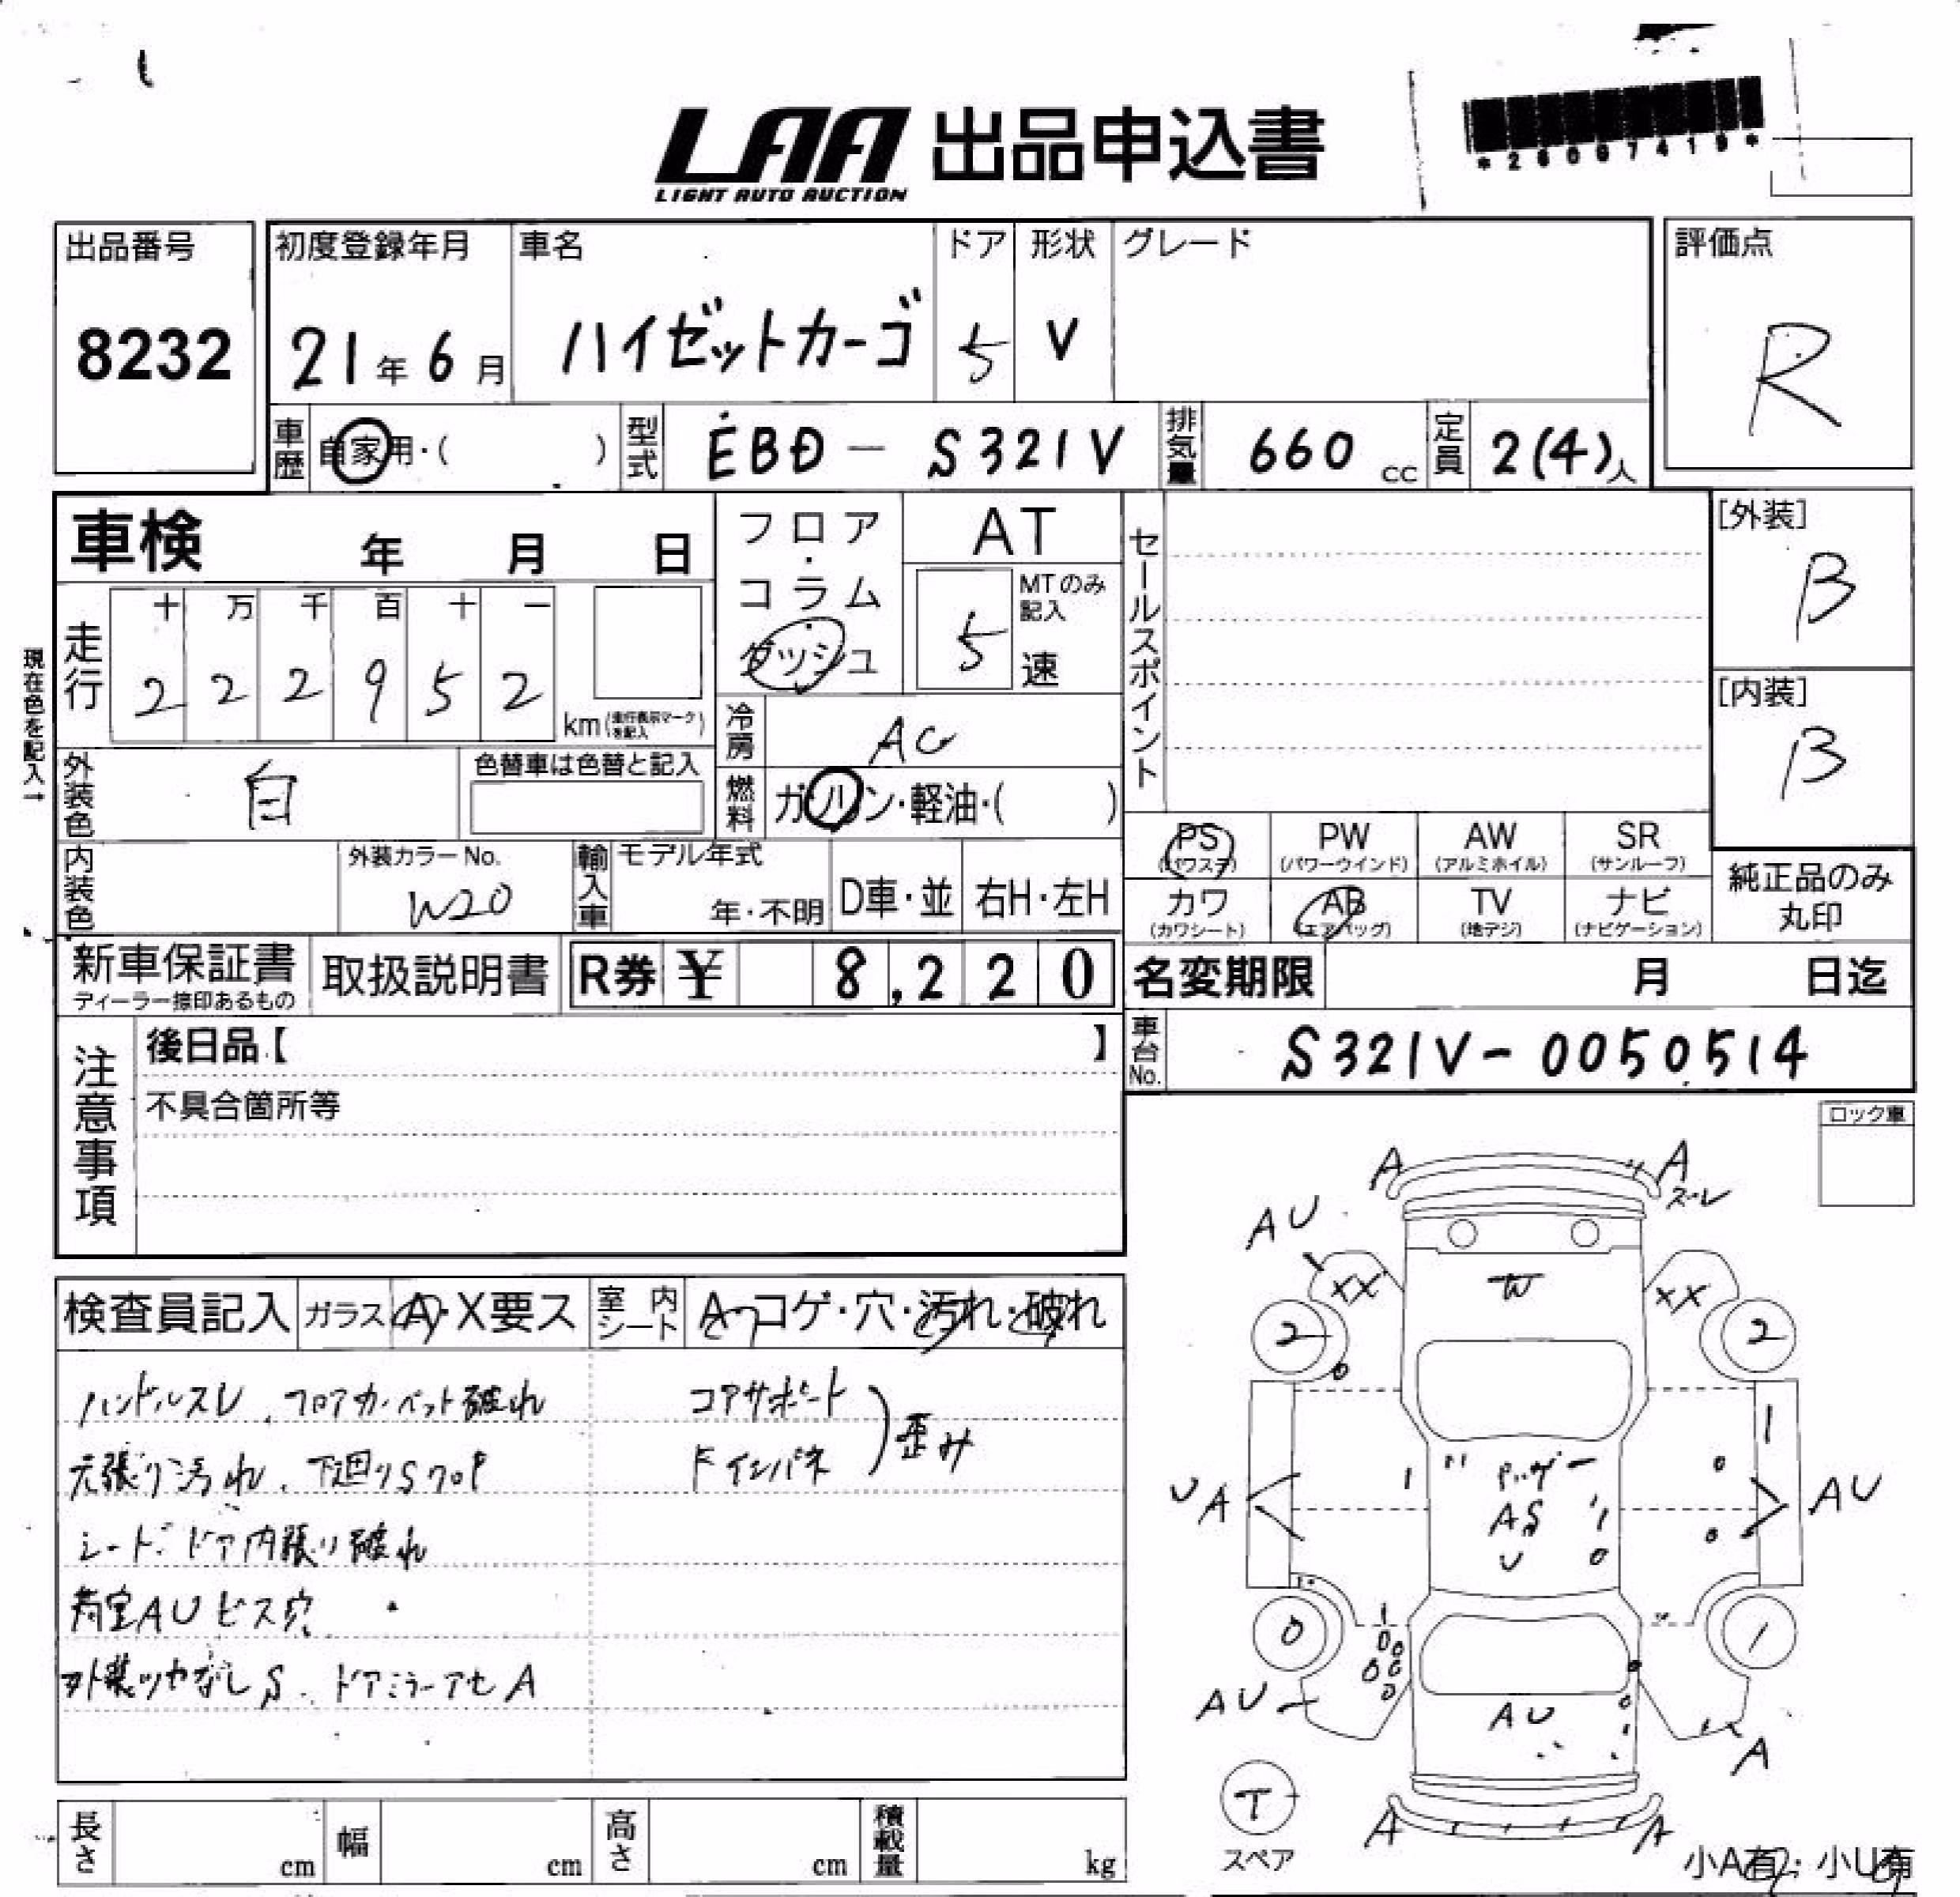 LAA 出品申込書
LIGHT AUTO AUCTION
出品番号
8232
初度登録年月
21年6月
車名
ハイゼットカーゴ
ドア
5
形状
V
グレード
評価点
R
車歴 自家用・( )
型式 EBD-S321V
排気量 660 cc
定員 2(4)人
車検 年 月 日
フロア・コラム・ダッシュ
AT
MTのみ記入
5速
セールスポイント
[外装]
B
[内装]
B
現在色を記入→
走行
十 万 千 百 十 一
2 2 2 9 5 2
km(走行表示マークを記入)
冷房 AC
外装色 白
色替車は色替と記入
燃料 ガソリン・軽油・( )
内装色
外装カラーNo.
W20
輸入車 モデル年式
年・不明
D車・並
右H・左H
PS (パワステ)
PW (パワーウインド)
AW (アルミホイル)
SR (サンルーフ)
カワ (カワシート)
AB (エアバッグ)
TV (地デジ)
ナビ (ナビゲーション)
純正品のみ丸印
新車保証書
ディーラー捺印あるもの
取扱説明書
R券 ¥ 8,220
名変期限 月 日迄
車台No. S321V-0050514
注意事項
後日品【 】
不具合箇所等
ロック車
検査員記入 ガラス A・X要ス
室内シート A・コゲ・穴・汚れ・破れ
ハンドルスレ、フロアカーペット破れ
天張り汚れ、下廻りS
シート・ドア内張り破れ
荷室AU ビス穴
外装ツヤなしS、ドアミラーアセA
コアサポート
Fインパネ
歪み
A
A
ズレ
AU
XX
W
XX
2
2
UA
AS
U
AU
0
1
AU
AU
A
T
スペア
A
A
小A有・小U有
長さ cm
幅 cm
高さ cm
積載量 kg